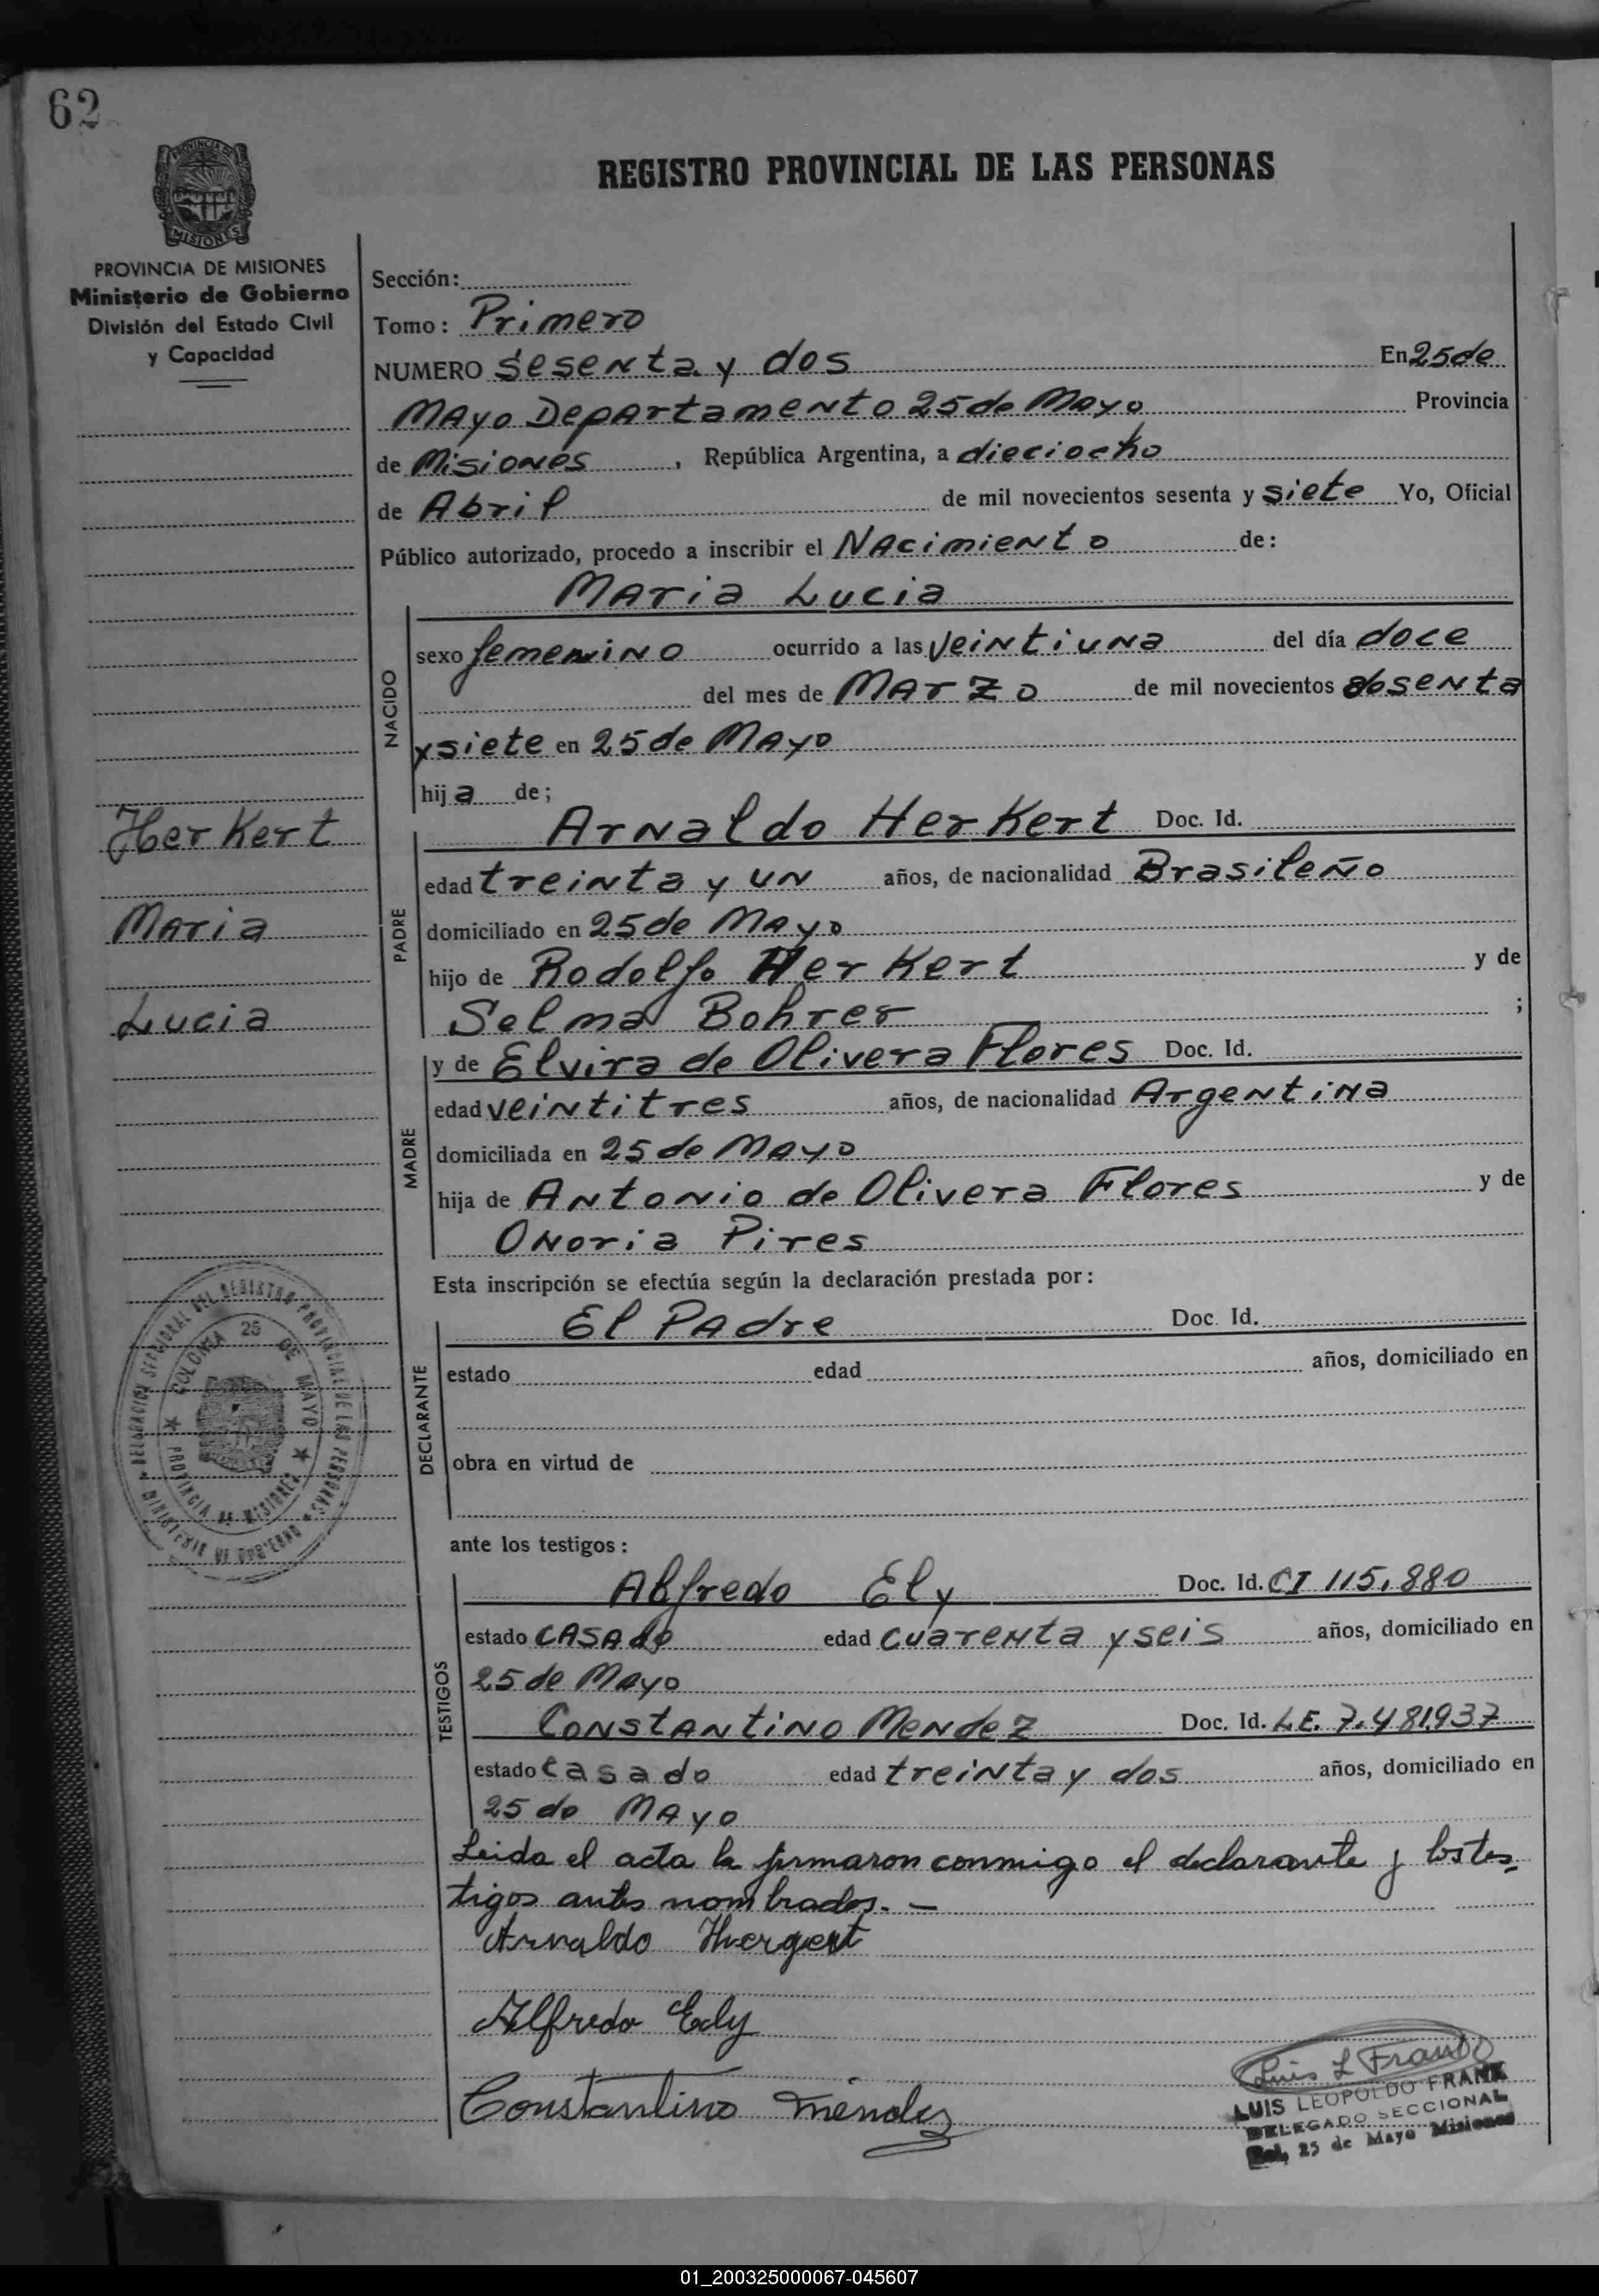 62
REGISTRO PROVINCIAL DE LAS PERSONAS
PROVINCIA DE
MISIONES
PROVINCIA DE MISIONES
Ministerio de Gobierno
División del Estado Civil
y Capacidad
Sección:
Tomo: Primero
NUMERO sesenta y dos En 25 de
Mayo Departamento 25 de Mayo Provincia
de Misiones, República Argentina, a dieciocho
de Abril de mil novecientos sesenta y siete Yo, Oficial
Público autorizado, procedo a inscribir el Nacimiento de:
Maria Lucia
NACIDO
sexo femenino ocurrido a las veintiuna del día doce
del mes de Marzo de mil novecientos sesenta
y siete en 25 de Mayo
hija de;
Herkert
Maria
Lucia
PADRE
Arnaldo Herkert Doc. Id.
edad treinta y un años, de nacionalidad Brasileño
domiciliado en 25 de Mayo
hijo de Rodolfo Herkert y de
Selma Bohrer ;
MADRE
y de Elvira de Olivera Flores Doc. Id.
edad veintitres años, de nacionalidad Argentina
domiciliada en 25 de Mayo
hija de Antonio de Olivera Flores y de
Onoria Pires
Esta inscripción se efectúa según la declaración prestada por:
DECLARANTE
El Padre Doc. Id.
estado edad años, domiciliado en
obra en virtud de
DELEGACION SECCIONAL DEL REGISTRO PROVINCIAL DE LAS PERSONAS
MINISTERIO DE GOBIERNO
COLONIA 25 DE MAYO
PROVINCIA DE MISIONES
ante los testigos:
TESTIGOS
Alfredo Ely Doc. Id. CI 115.880
estado casado edad cuarenta y seis años, domiciliado en
25 de Mayo
Constantino Mendez Doc. Id. L.E. 7.481.937
estado casado edad treinta y dos años, domiciliado en
25 de Mayo
Leida el acta la firmaron conmigo el declarante y los tes-
tigos antes nombrados. —
Arnaldo Hergert
Alfredo Ely
Constantino Méndez
Luis L Frank
LUIS LEOPOLDO FRANK
DELEGADO SECCIONAL
Col. 25 de Mayo Misiones
01_200325000067-045607